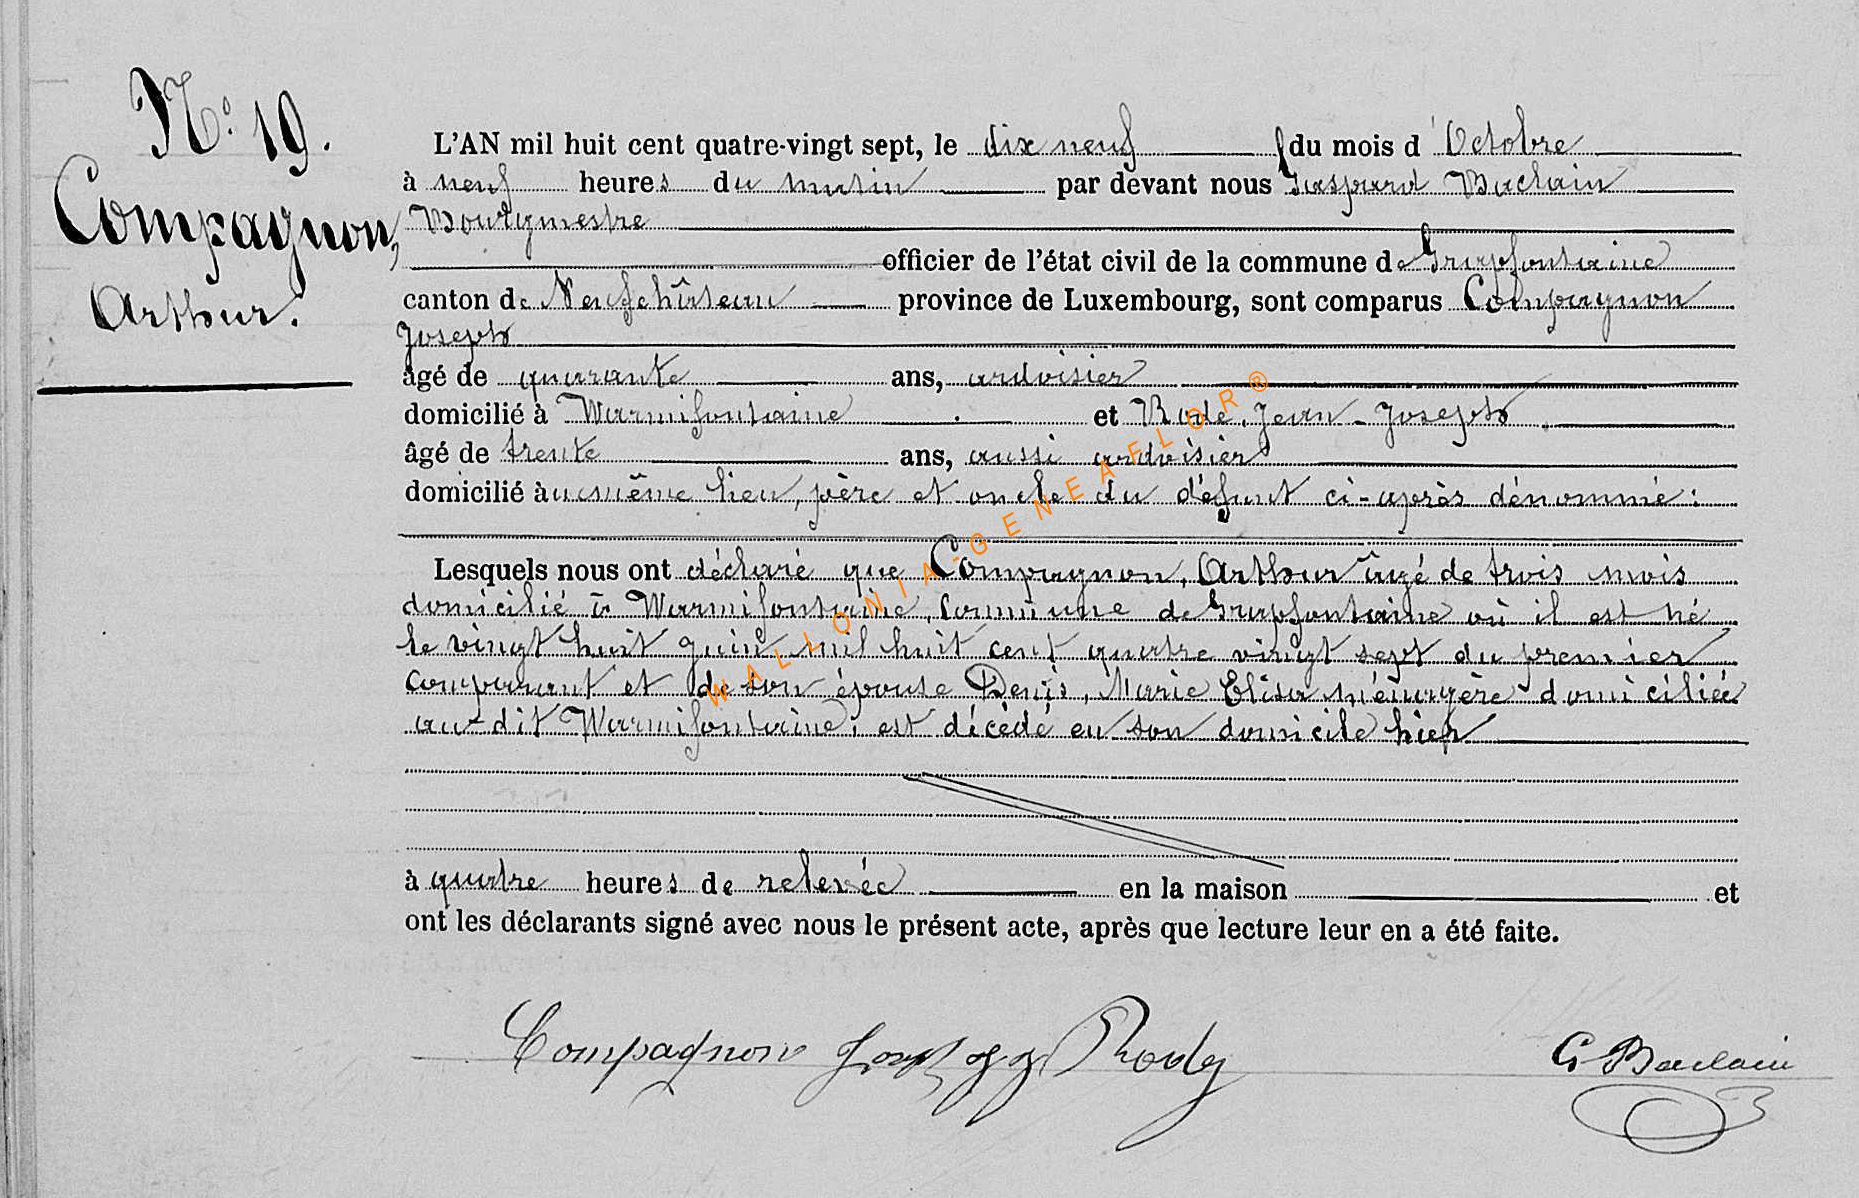 N° 19.
Compagnon,
Arthur.
L'AN mil huit cent quatre-vingt sept, le dix neuf du mois d'Octobre
à neuf heures du matin par devant nous Gaspard Baclain
Bourgmestre
officier de l'état civil de la commune de Grapfontaine
canton de Neufchâteau province de Luxembourg, sont comparus Compagnon
Joseph
âgé de quarante ans, ardoisier
domicilié à Warmifontaine et Rode, Jean-Joseph
âgé de trente ans, aussi ardoisier
domicilié au même lieu, père et oncle du défunt ci-après dénommé:
Lesquels nous ont déclaré que Compagnon, Arthur âgé de trois mois
domicilié à Warmifontaine, commune de Grapfontaine où il est né
le vingt huit Juin mil huit cent quatre vingt sept du premier
comparant et de son épouse Denis, Marie Elisa ménagère domiciliée
au-dit Warmifontaine, est décédé en son domicile hier
à quatre heures de relevée en la maison et
ont les déclarants signé avec nous le présent acte, après que lecture leur en a été faite.
Compagnon Joseph JJ Rode G Baclain
WALLONIA-GENEAFLOR®